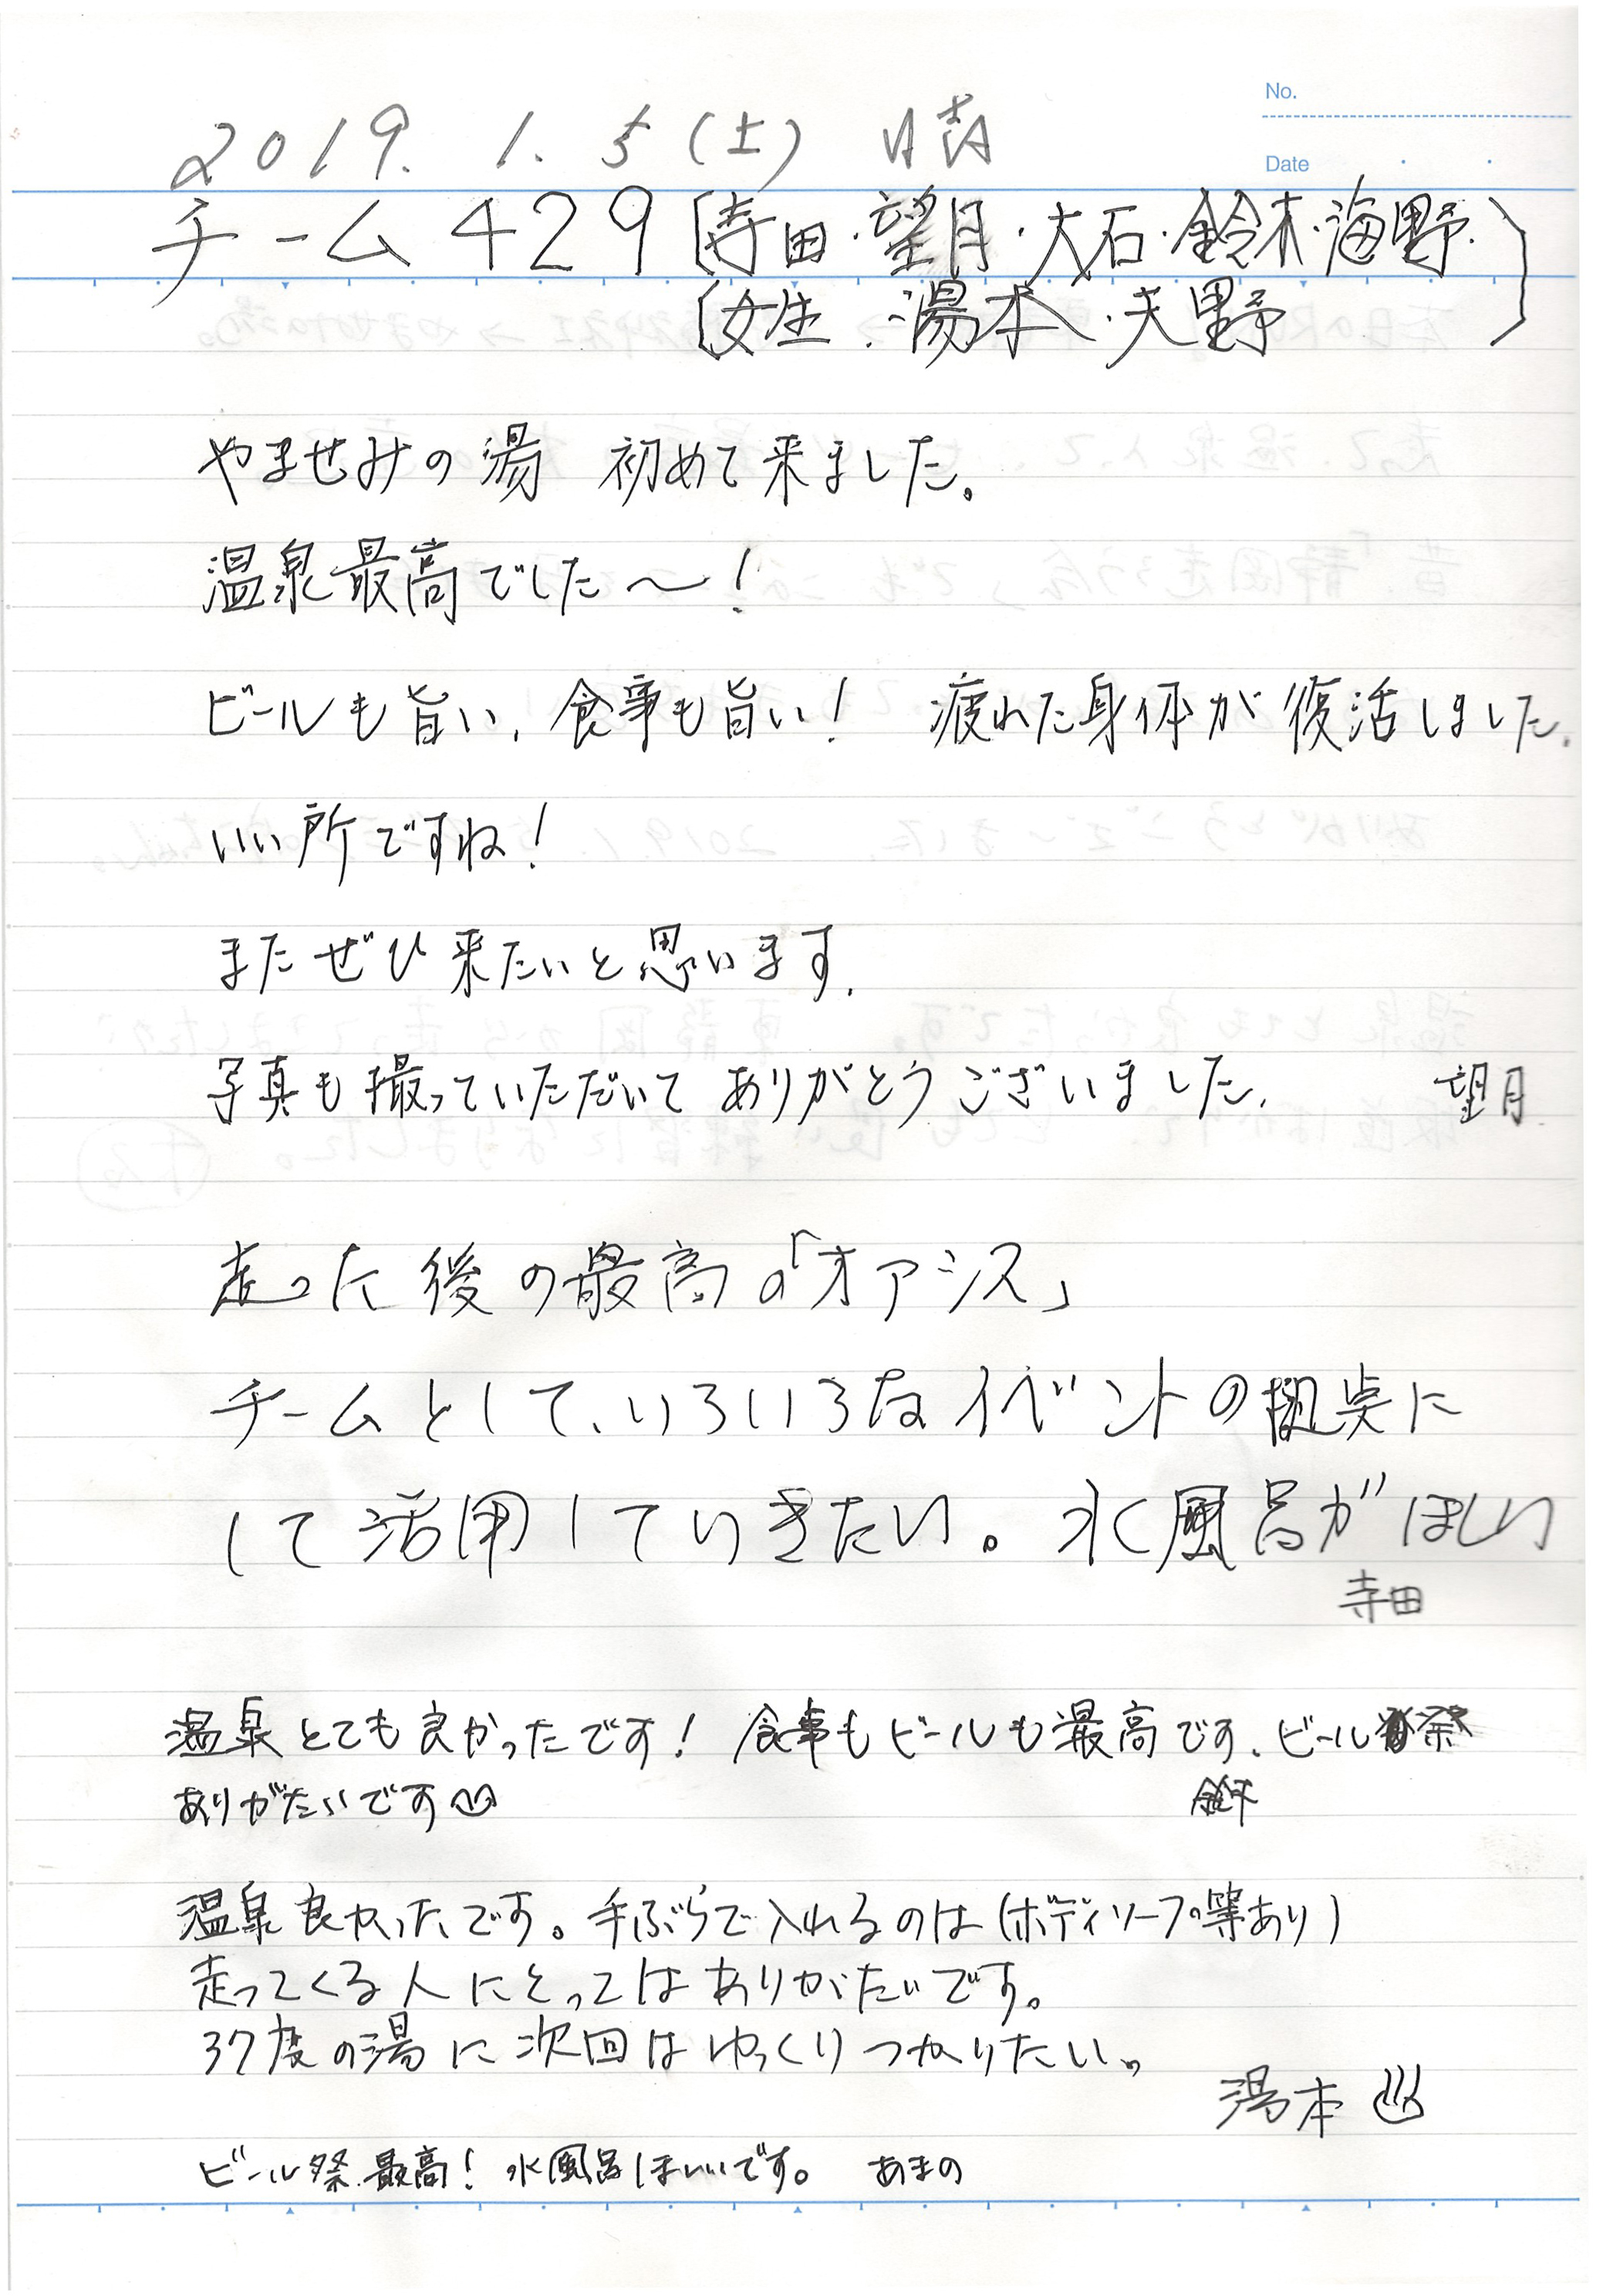 No.
Date
2019. 1. 5 (土) 晴
チーム429 (寺田・望月・大石・鈴木・海野・
(女性・湯本・天野)
やませみの湯 初めて来ました。
温泉最高でした～!
ビールも旨い、食事も旨い! 疲れた身体が復活しました。
いい所ですね!
またぜひ来たいと思います.
写真も撮っていただいてありがとうございました. 望月
走った後の最高の「オアシス」
チームとして、いろいろなイベントの拠点に
して活用していきたい。水風呂がほしい
寺田
温泉とても良かったです! 食事もビールも最高です、ビール祭
ありがたいです
温泉良かったです。手ぶらで入れるのは(ボディソープ等あり)
走ってくる人にとってはありがたいです。
37度の湯に次回はゆっくりつかりたい。
湯本♨
ビール祭、最高! 水風呂ほしいです。 あまの